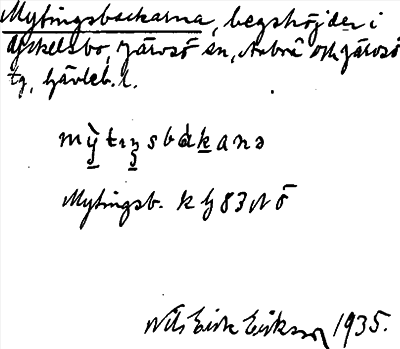 Mytingsbackarna, bergshöjder i
Åckelsbo, Järvsö sn, Arbrå och Järvsö
tg, Gävleb. l.
mỳtıŋsbàkanə
Mytingsb. k G 83 N Ö
Nils Eirik Eriksson 1935.